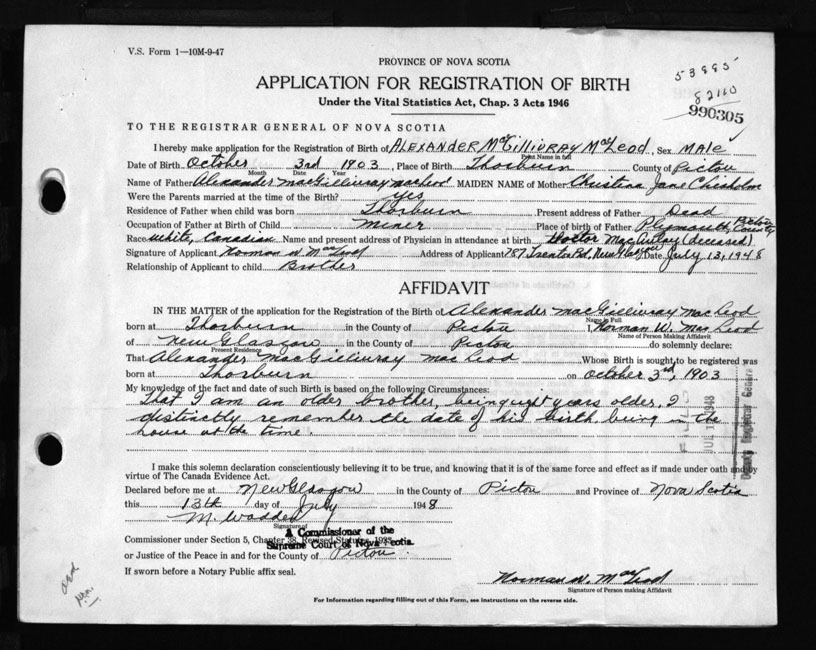 V.S. Form 1—10M-9-47
PROVINCE OF NOVA SCOTIA
53885
82110
990305
APPLICATION FOR REGISTRATION OF BIRTH
Under the Vital Statistics Act, Chap. 3 Acts 1946
TO THE REGISTRAR GENERAL OF NOVA SCOTIA
I hereby make application for the Registration of Birth of ALEXANDER MacGillivray MacLeod, Sex MALE
Print Name in full
Date of Birth October 3rd 1903, Place of Birth Thorburn County of Pictou
Month Date Year
Name of Father Alexander MacGillivray MacLeod MAIDEN NAME of Mother Christina Jane Chisholm
Were the Parents married at time of the Birth? yes
Residence of Father when child was born Thorburn Present address of Father Dead
Occupation of Father at Birth of Child Miner Place of birth of Father Plymouth, Pictou County
Race White, Canadian Name and present address of Physician in attendance at birth Doctor MacAulay (deceased)
Signature of Applicant Norman W MacLeod Address of Applicant 787 Trenton Rd, New Glasgow Date July 13, 1948
Relationship of Applicant to child Brother
AFFIDAVIT
IN THE MATTER of the application for the Registration of the Birth of Alexander MacGillivray MacLeod
Name in Full
born at Thorburn in the County of Pictou I, Norman W. MacLeod
Name of Person Making Affidavit
of New Glasgow in the County of Pictou do solemnly declare:
Present Residence
That Alexander MacGillivray MacLeod Whose Birth is sought to be registered was
born at Thorburn on October 3rd, 1903
My knowledge of the fact and date of such Birth is based on the following Circumstances:
That I am an older brother, being years older, I
distinctly remember the date of his birth being in the
house at the time.
I make this solemn declaration conscientiously believing it to be true, and knowing that it is of the same force and effect as if made under oath and by
virtue of The Canada Evidence Act.
Declared before me at New Glasgow in the County of Pictou and Province of Nova Scotia
this 13th day of July 1948
M. Wadden
Signature of
A Commissioner of the
Commissioner under Section 5, Chapter 38, Revised Statutes, 1923
Supreme Court of Nova Scotia.
or Justice of the Peace in and for the County of Pictou.
If sworn before a Notary Public affix seal.
Norman W. MacLeod
Signature of Person making Affidavit
For Information regarding filling out of this Form, see instructions on the reverse side.